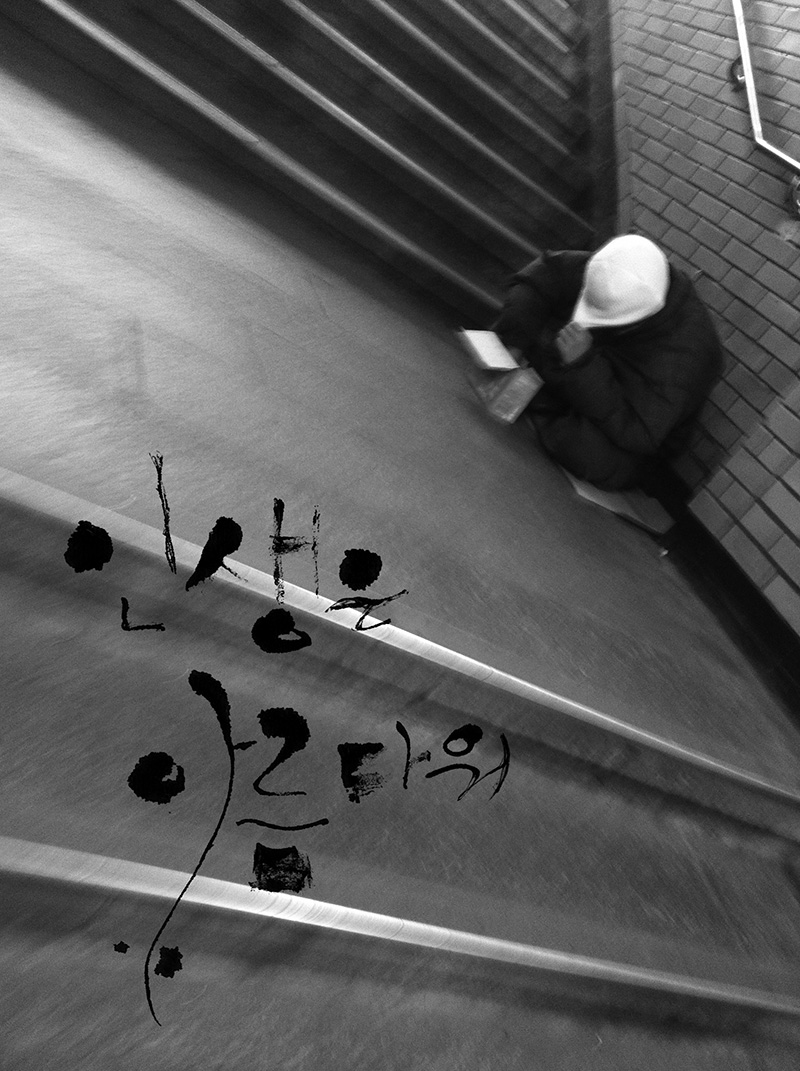 인생은
아름다워